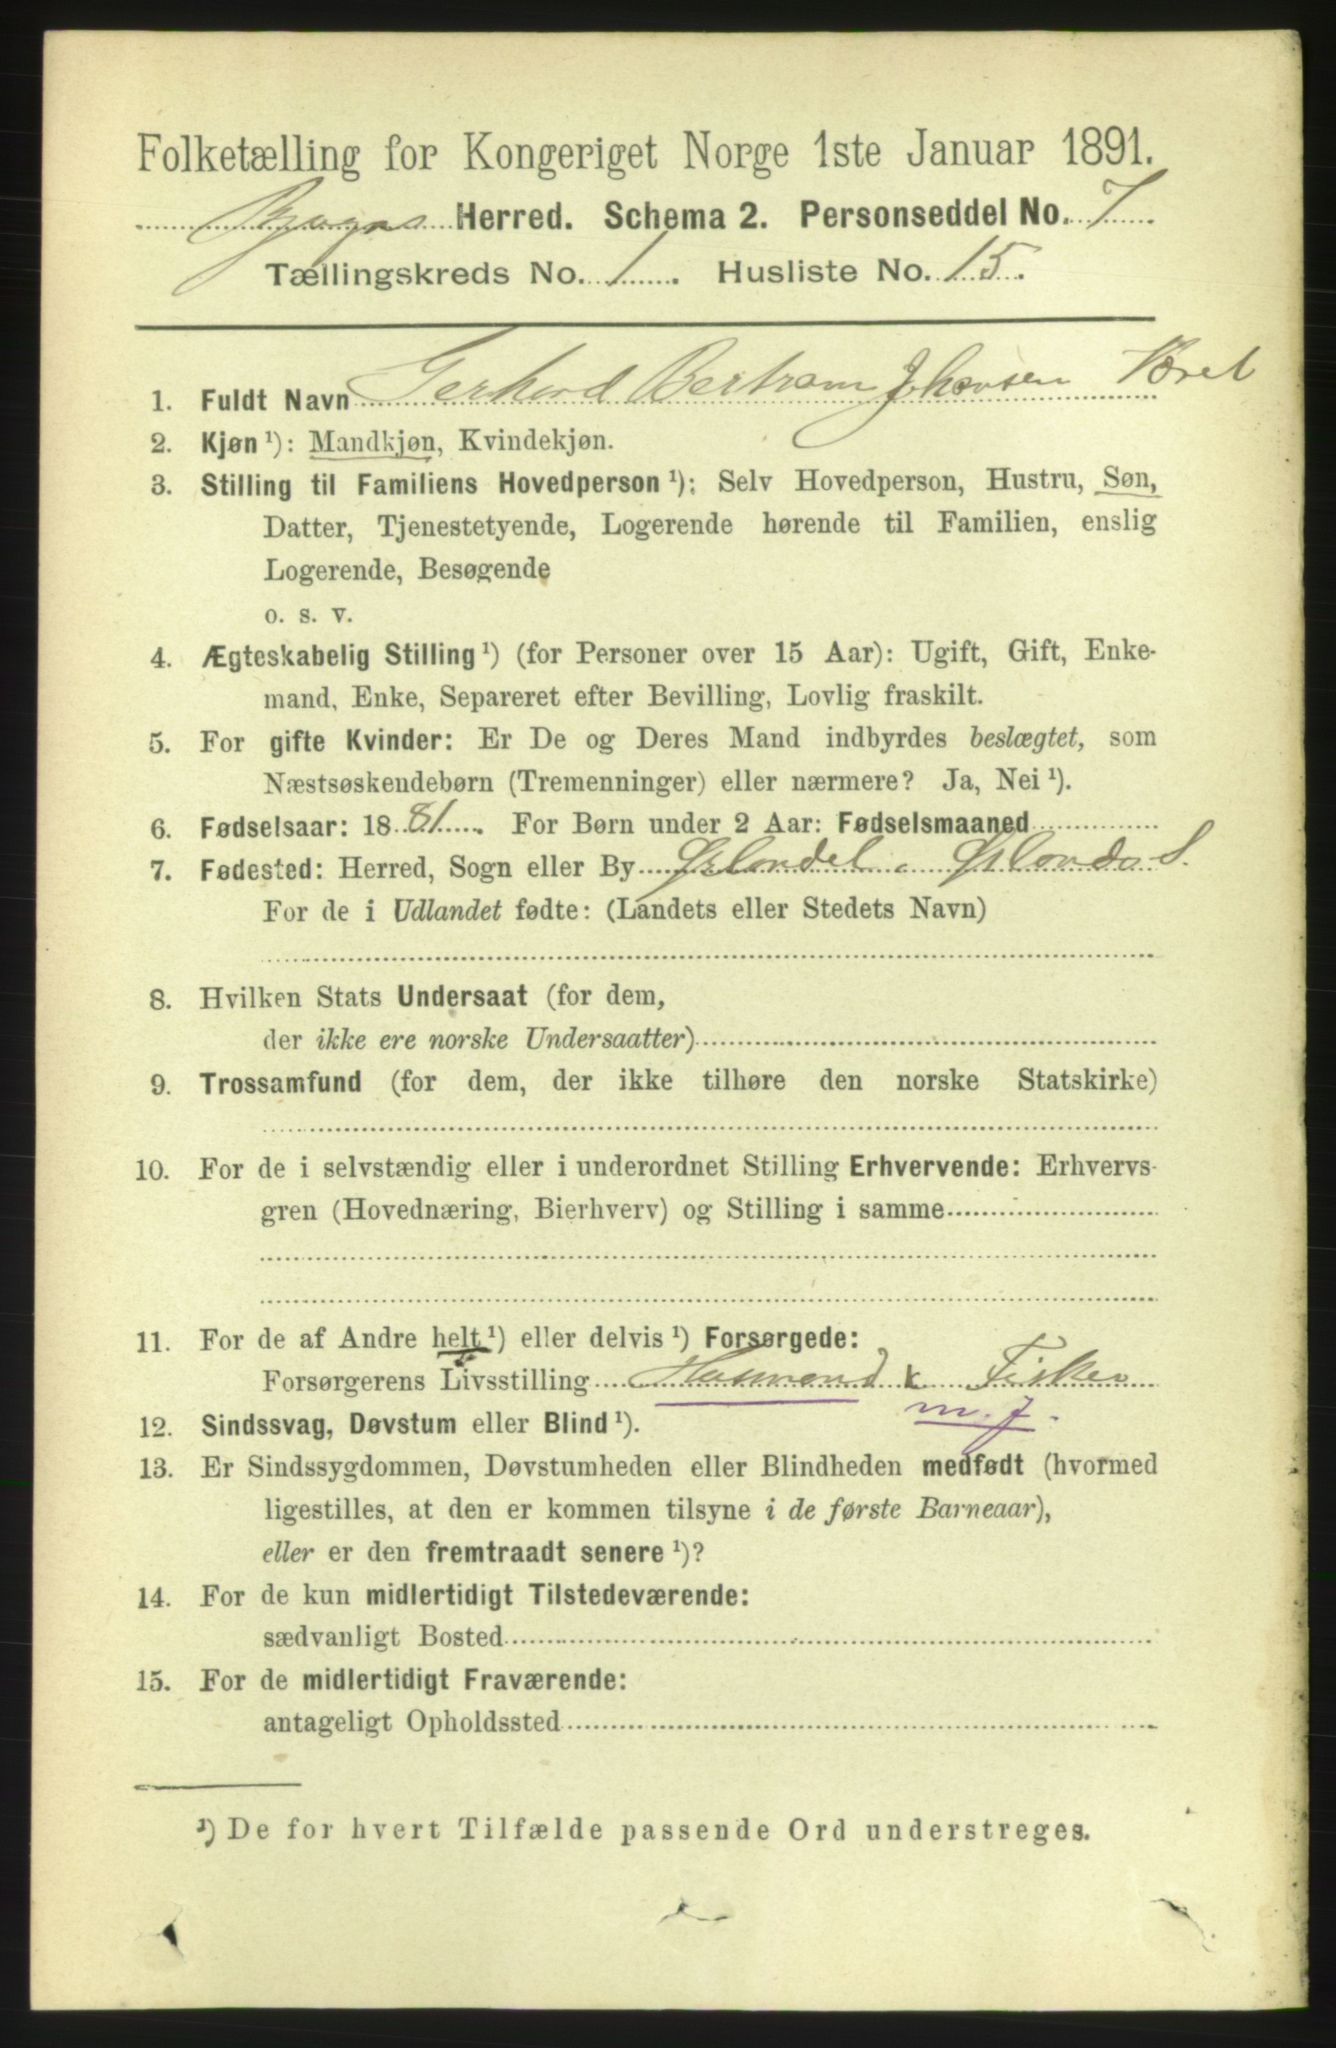 Folketælling for Kongeriget Norge 1ste Januar 1891.
Herred. Schema 2. Personseddel No. 7
Tællingskreds No. 1. Husliste No. 15.
1. Fuldt Navn Gerhard Bertram Johansen
2. Kjøn ¹): Mandkjøn, Kvindekjøn.
3. Stilling til Familiens Hovedperson ¹): Selv Hovedperson, Hustru, Søn,
Datter, Tjenestetyende, Logerende hørende til Familien, enslig
Logerende, Besøgende
o. s. v.
4. Ægteskabelig Stilling ¹) (for Personer over 15 Aar): Ugift, Gift, Enke-
mand, Enke, Separeret efter Bevilling, Lovlig fraskilt.
5. For gifte Kvinder: Er De og Deres Mand indbyrdes beslægtet, som
Næstsøskendebørn (Tremenninger) eller nærmere? Ja, Nei ¹).
6. Fødselsaar: 1881. For Børn under 2 Aar: Fødselsmaaned
7. Fødested: Herred, Sogn eller By
For de i Udlandet fødte: (Landets eller Stedets Navn)
8. Hvilken Stats Undersaat (for dem,
der ikke ere norske Undersaatter)
9. Trossamfund (for dem, der ikke tilhøre den norske Statskirke)
10. For de i selvstændig eller i underordnet Stilling Erhvervende: Erhvervs-
gren (Hovednæring, Bierhverv) og Stilling i samme
11. For de af Andre helt ¹) eller delvis ¹) Forsørgede:
Forsørgerens Livsstilling Husmand & Fisker
m. j.
12. Sindssvag, Døvstum eller Blind ¹).
13. Er Sindssygdommen, Døvstumheden eller Blindheden medfødt (hvormed
ligestilles, at den er kommen tilsyne i de første Barneaar),
eller er den fremtraadt senere ¹)?
14. For de kun midlertidigt Tilstedeværende:
sædvanligt Bosted
15. For de midlertidigt Fraværende:
antageligt Opholdssted
¹) De for hvert Tilfælde passende Ord understreges.